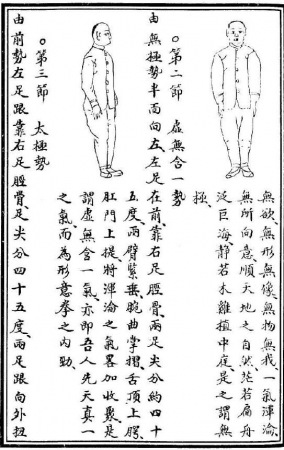 無欲、無形無像、無物無我、一氣渾淪、
無所向意、順天地之自然、茫若扁舟
泛巨海、靜若木雞植中庭、是之謂無
極、
○第二節　虛無含一勢
由無極勢半面向左、左足在前靠右足脛骨、兩足尖分約四十
五度、兩臂緊垂、腕曲掌摺、舌頂上腭、
肛門上提、將渾淪之氣畧加收聚、是
謂虛無含一氣、亦即吾人先天真一
之氣、而為形意拳之內勁、
○第三節　太極勢
由前勢左足跟靠右足脛骨、足尖分四十五度、兩足跟向外扭